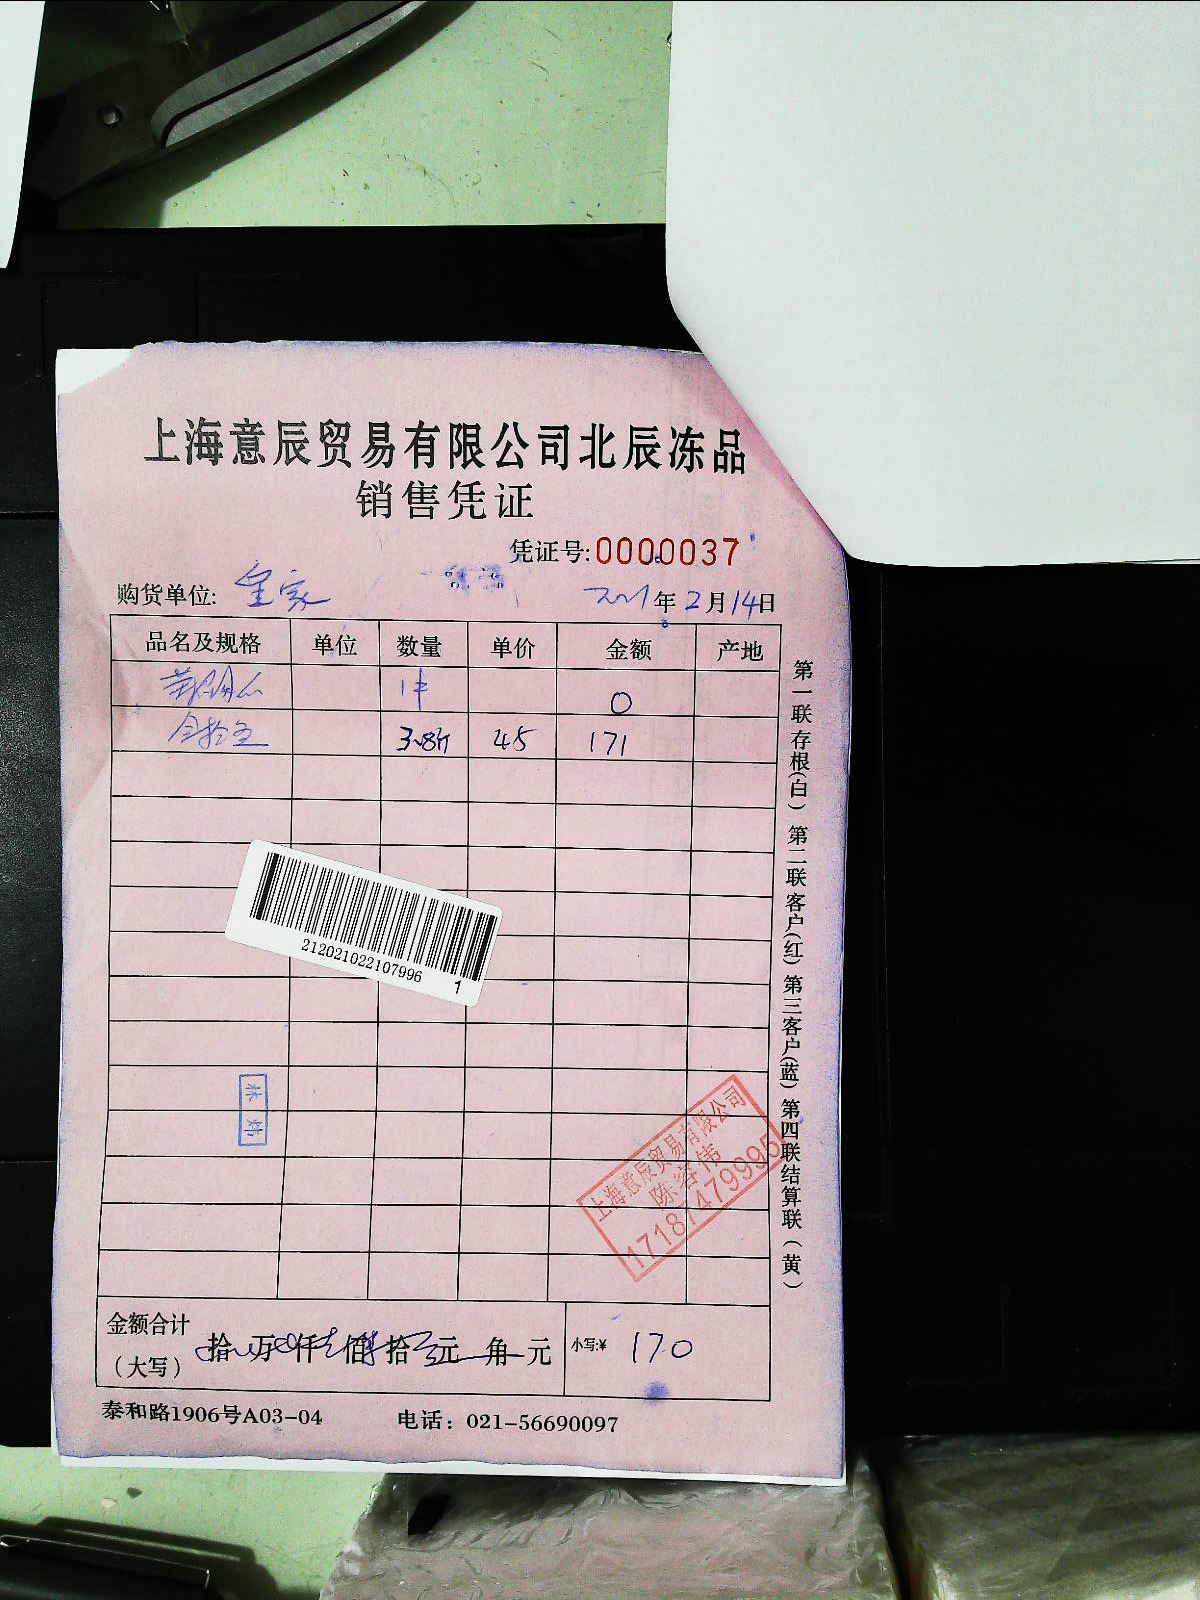 上海意辰贸易有限公司北辰冻品
销售凭证
凭证号:0000037
购货单位: 皇家 2021年2月14日
品名及规格 单位 数量 单价 金额 产地
1件 0
3.8斤 45 171
212021022107996
1
林炜
上海意辰贸易有限公司
陈容伟
17187479995
金额合计
(大写) 拾 万 仟 佰 拾 元 角 元 小写:¥ 170
泰和路1906号A03-04 电话: 021-56690097
第一联存根(白) 第二联客户(红) 第三客户(蓝) 第四联结算联(黄)